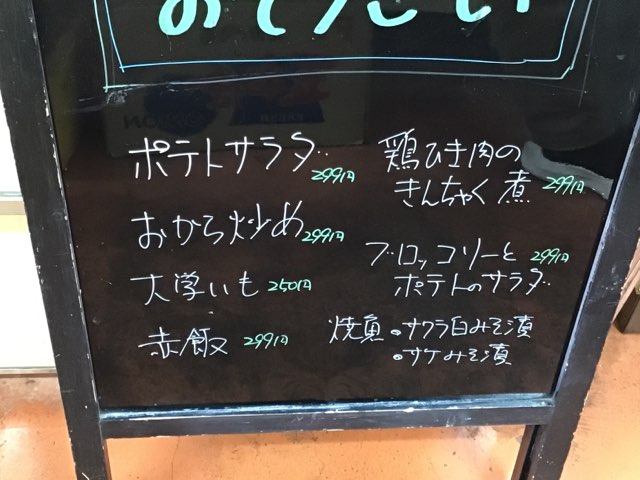 ポテトサラダ 299円
おから炒め 299円
大学いも 250円
赤飯 299円
鶏ひき肉の
きんちゃく煮 299円
ブロッコリーと 299円
ポテトのサラダ
焼魚 ・サワラ白みそ漬
・サケみそ漬